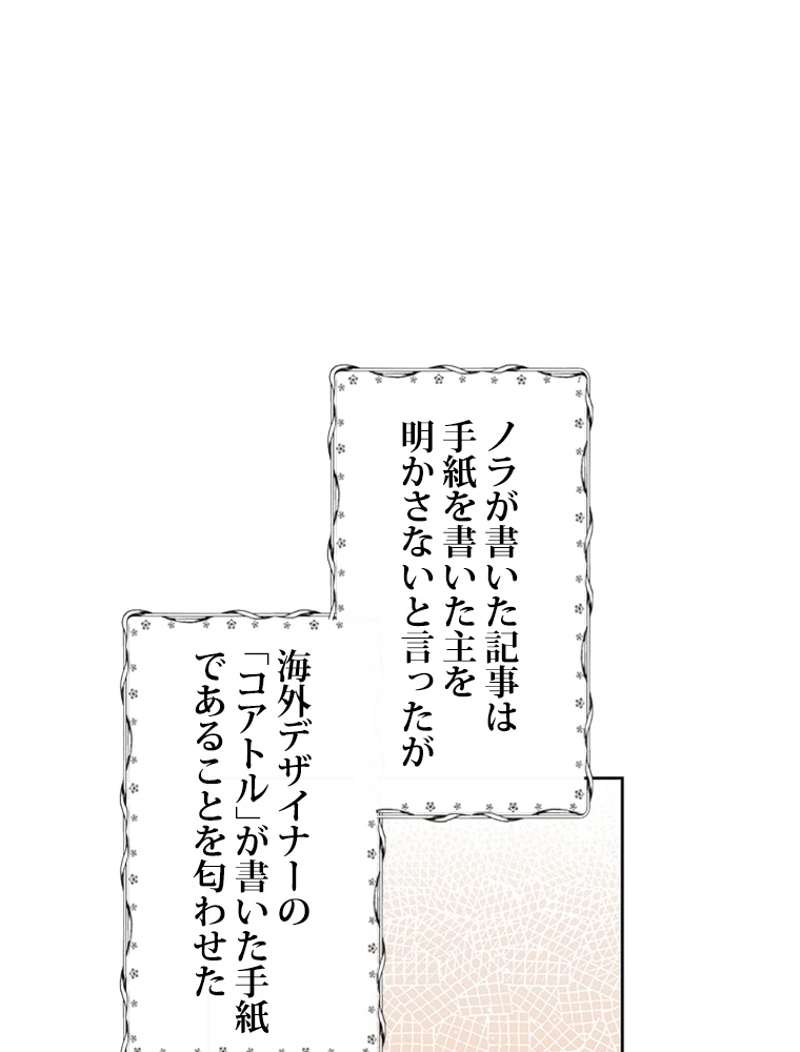 ノラが書いた記事は
手紙を書いた主を
明かさないと言ったが
海外デザイナーの
「コアトル」が書いた手紙
であることを匂わせた